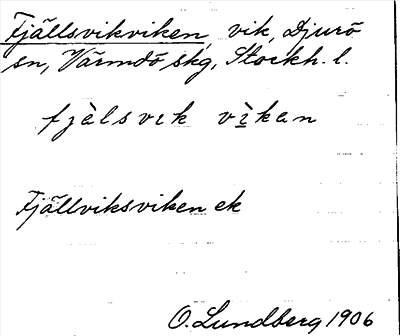 Fjällsvikviken, vik, Djurö
sn, Värmdö skg, Stockh. l.
fjälsvik vìkan
Fjällviksviken ek
O. Lundberg 1906